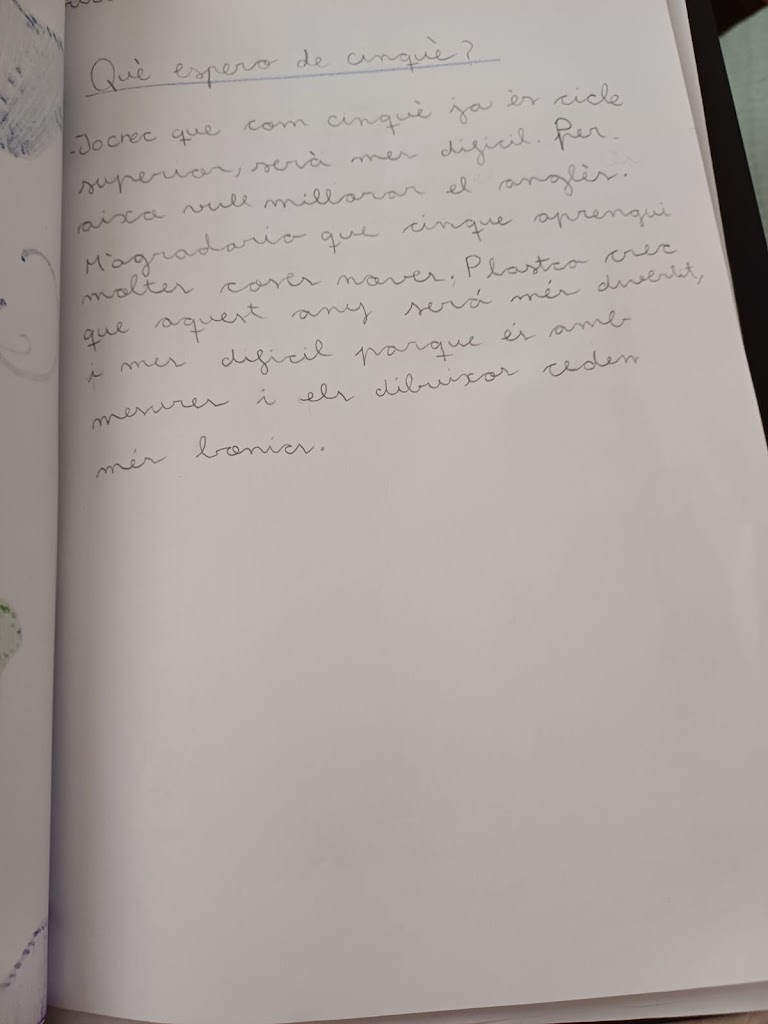 Què espero de cinquè?
-Jocrec que com cinquè ja ès cicle
superior, serà mes dificil. Per-
aixa vull millorar el anglès.
M'agradaria que cinque aprengui
moltes coses noves. Plastca crec
que aquest any será més divertit,
i mes dificil parque és amb
mesures i els dibuixos ceden
més bonics.